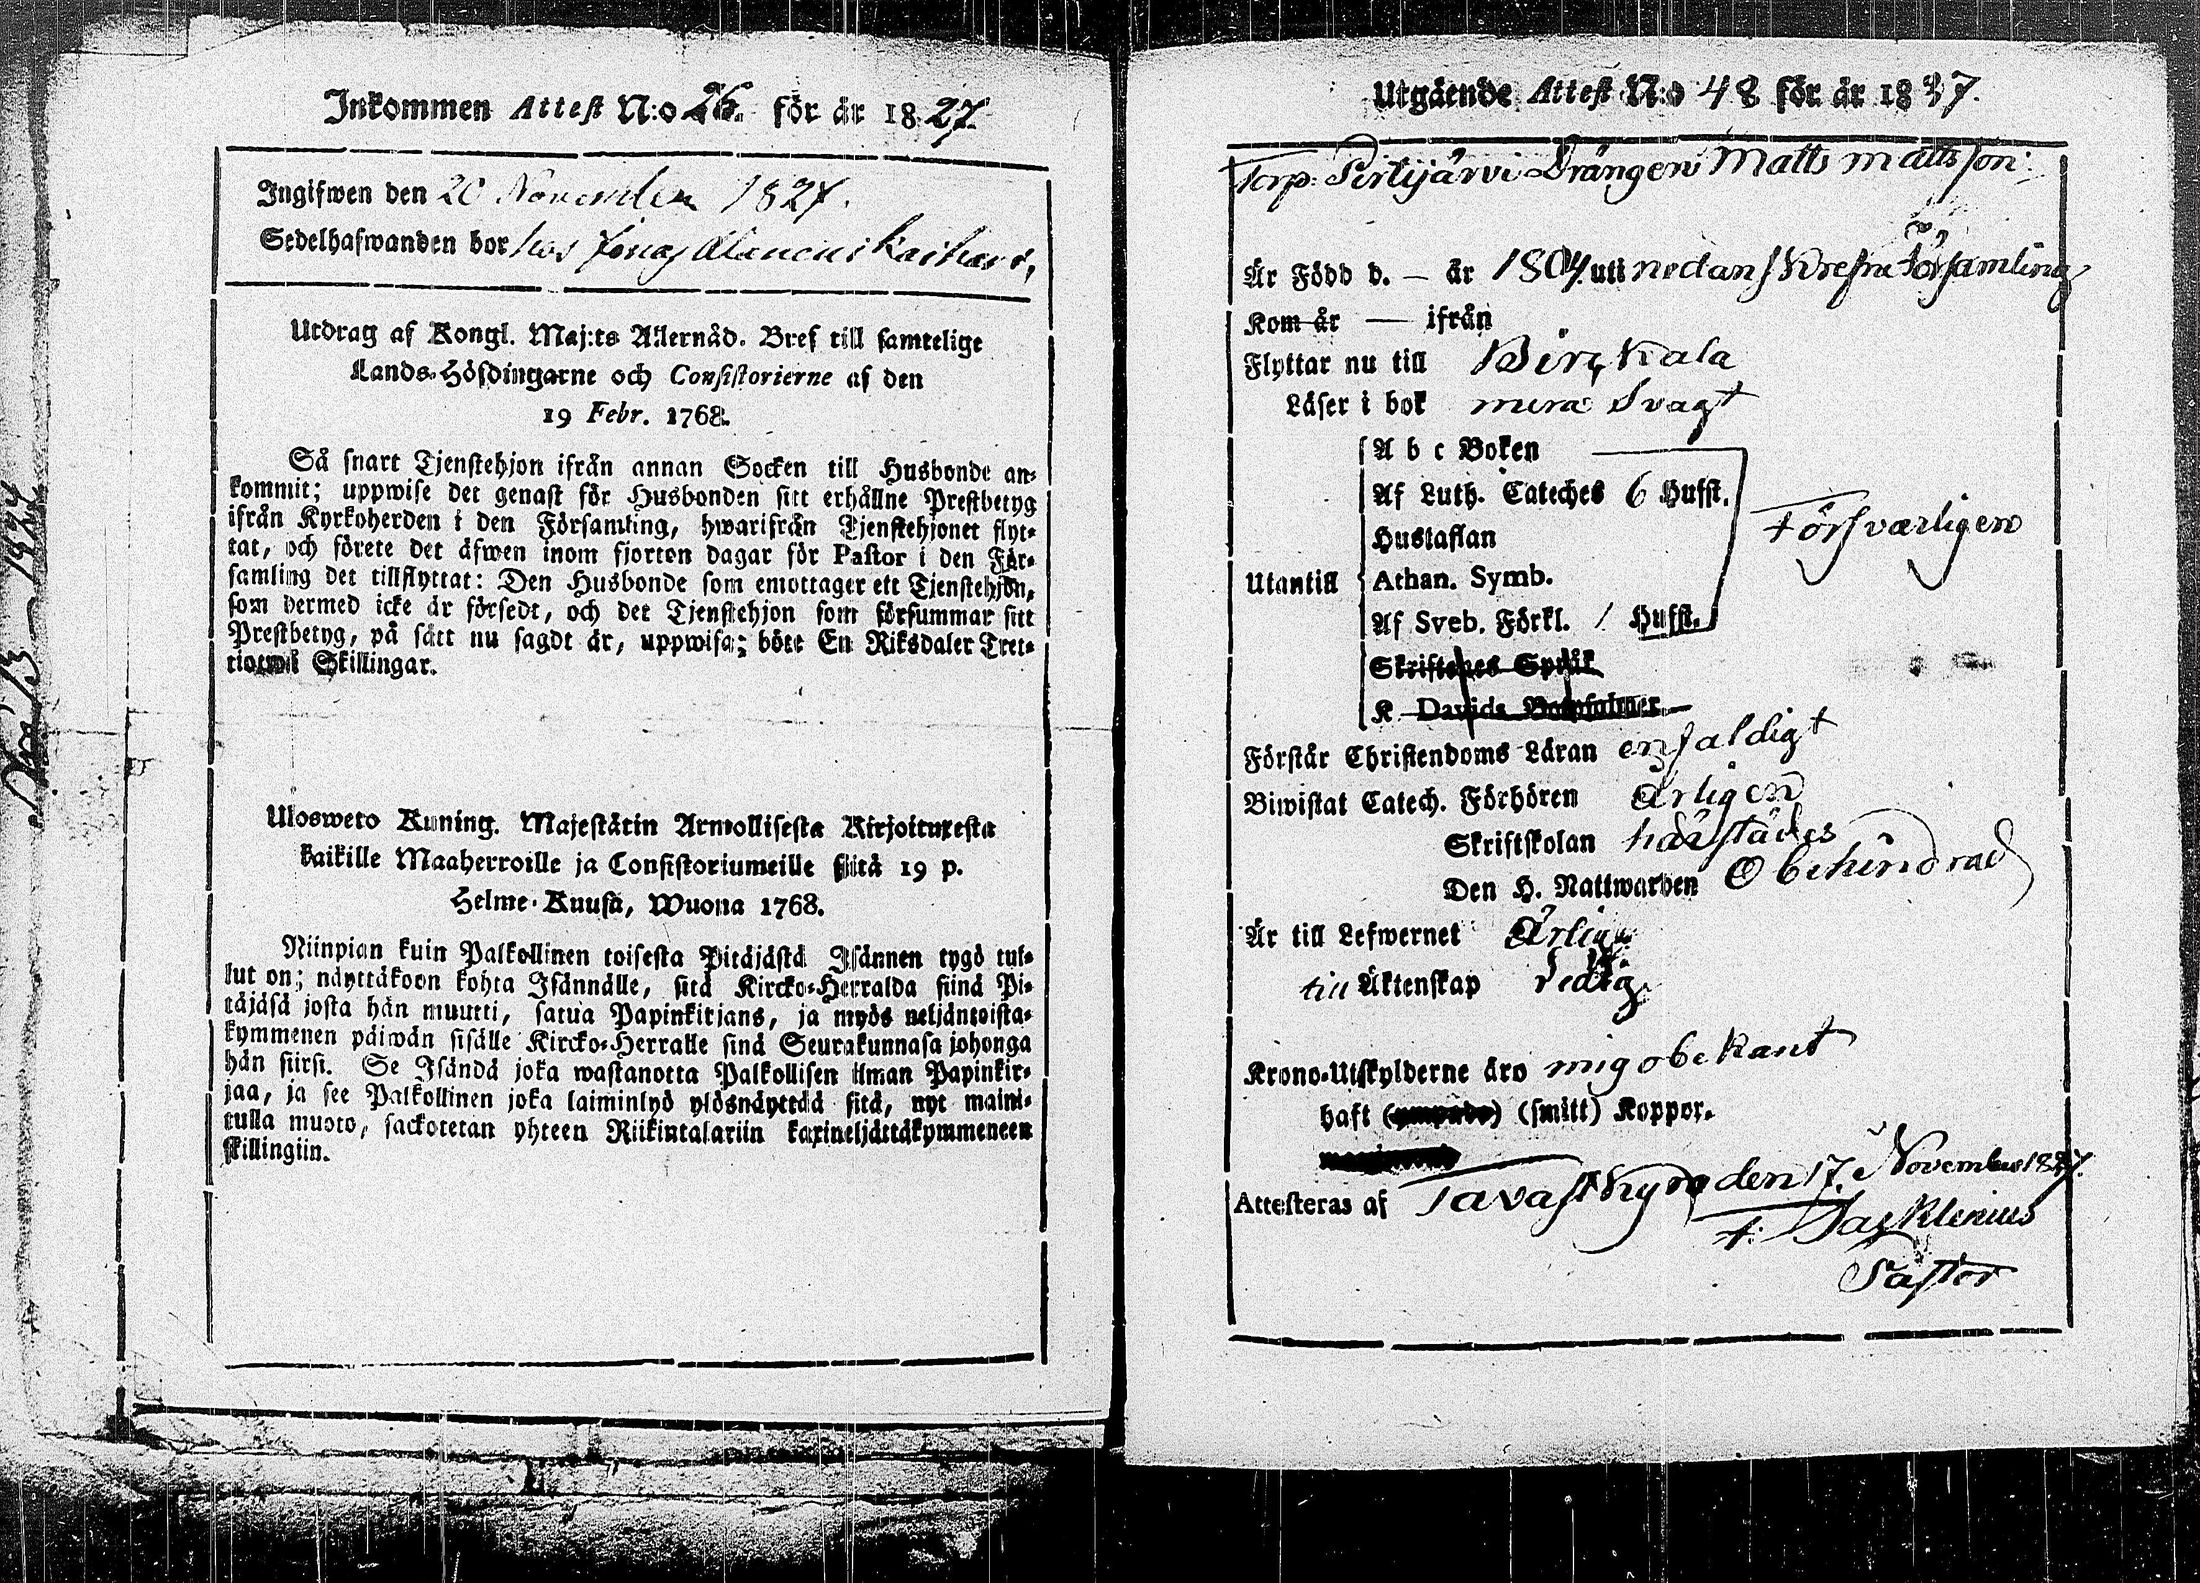 Inkommen Attest N:o 26. för år 1827.
Ingifwen den 20 November 1827.
Sedelhafwanden bor hos Jonas
Utdrag af Kongl. Maj:ts Allernåd. Bref till samtelige
Lands-Höfdingarne och Consistorierne af den
19 Febr. 1768.
Så snart Tjenstehjon ifrån annan Socken till Husbonde an-
kommit; uppwise det genast för Husbonden sitt erhållne Prestbetyg
ifrån Kyrkoherden i den Församling, hwarifrån Tjenstehjonet flyt-
tat, och förete det äfwen inom fjorton dagar för Pastor i den För-
samling det tillflyttat: Den Husbonde som emottager ett Tjenstehjon,
som dermed icke är försedt, och det Tjenstehjon som försummar sitt
Prestbetyg, på sätt nu sagdt är, uppwisa; böte En Riksdaler Tret-
tiotwå Skillingar.
Ulosweto Kuning. Majestätin Armollisesta Kirjoituxesta
kaikille Maaherroille ja Consistoriumeille siitä 19 p.
Helme-Kuusa, Wuonna 1768.
Niinpian kuin Palkollinen toisesta Pitäjästä Isännen tygö tul-
lut on; näyttäkoon kohta Isännälle, sitä Kircko-Herralda siinä Pi-
täjäsä josta hän muutti, satua Papinkirjans, ja myös neljäntoista-
kymmenen päiwän sisälle Kircko-Herralle sinä Seurakunnasa johonga
hän siirsi. Se Isändä joka wastanotta Palkollisen ilman Papinkir-
jaa, ja see Palkollinen joka laiminlyö ylösnäyttää sitä, nyt maini-
tulla muoto, sackotetan yhteen Riikintalariin kaxineljättäkymmeneen
skillingiin.
Utgående Attest N:o 48 för år 1827.
Torp. Pirtijärvi Drängen Matts Mattsson:
Är Född d. — år 1804. uti nedanskrefne Församling
Kom år — ifrån
Flyttar nu till Birckala
Läser i bok mera Svagt
A b c Boken
Af Luth. Cateches 6 Hufst.
Hustaflan
Försvarligen
Utantill
Athan. Symb.
Af Sveb. Förkl. / Hufst.
Skriftenes Språk
K. Davids Botpsalmer
Förstår Christendoms Läran enfaldigt
Biwistat Catech. Förhören Årligen
Skriftskolan härstädes
Den H. Nattwarden Obehindrad
Är till Lefwernet Ärlig
till Äktenskap Ledig
Krono-Utskylderne äro mig obekant
haft (smitt) Koppor.
Attesteras af Tavastkyro den 17. November 1827.
Pastor